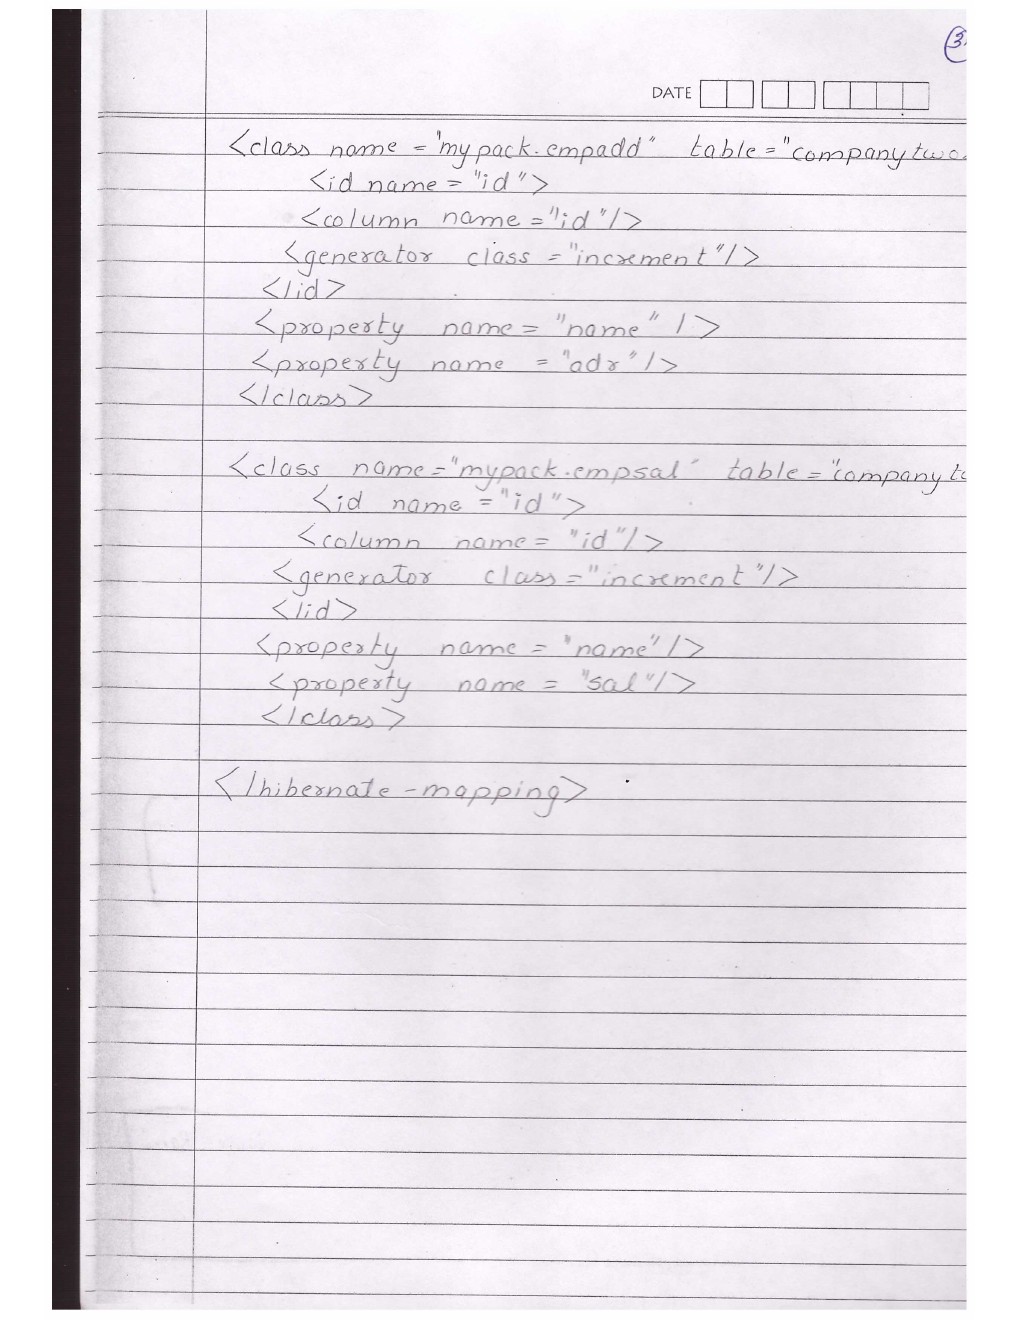 3.
DATE
<class name = "mypack.empadd" table = "companytwo
<id name = "id">
<column name = "id"/>
<generator class = "increment"/>
</id>
<property name = "name" />
<property name = "adr"/>
</class>
<class name = "mypack.empsal" table = "company
<id name = "id">
<column name = "id"/>
<generator class = "increment"/>
</id>
<property name = "name"/>
<property name = "sal"/>
</class>
</hibernate-mapping>